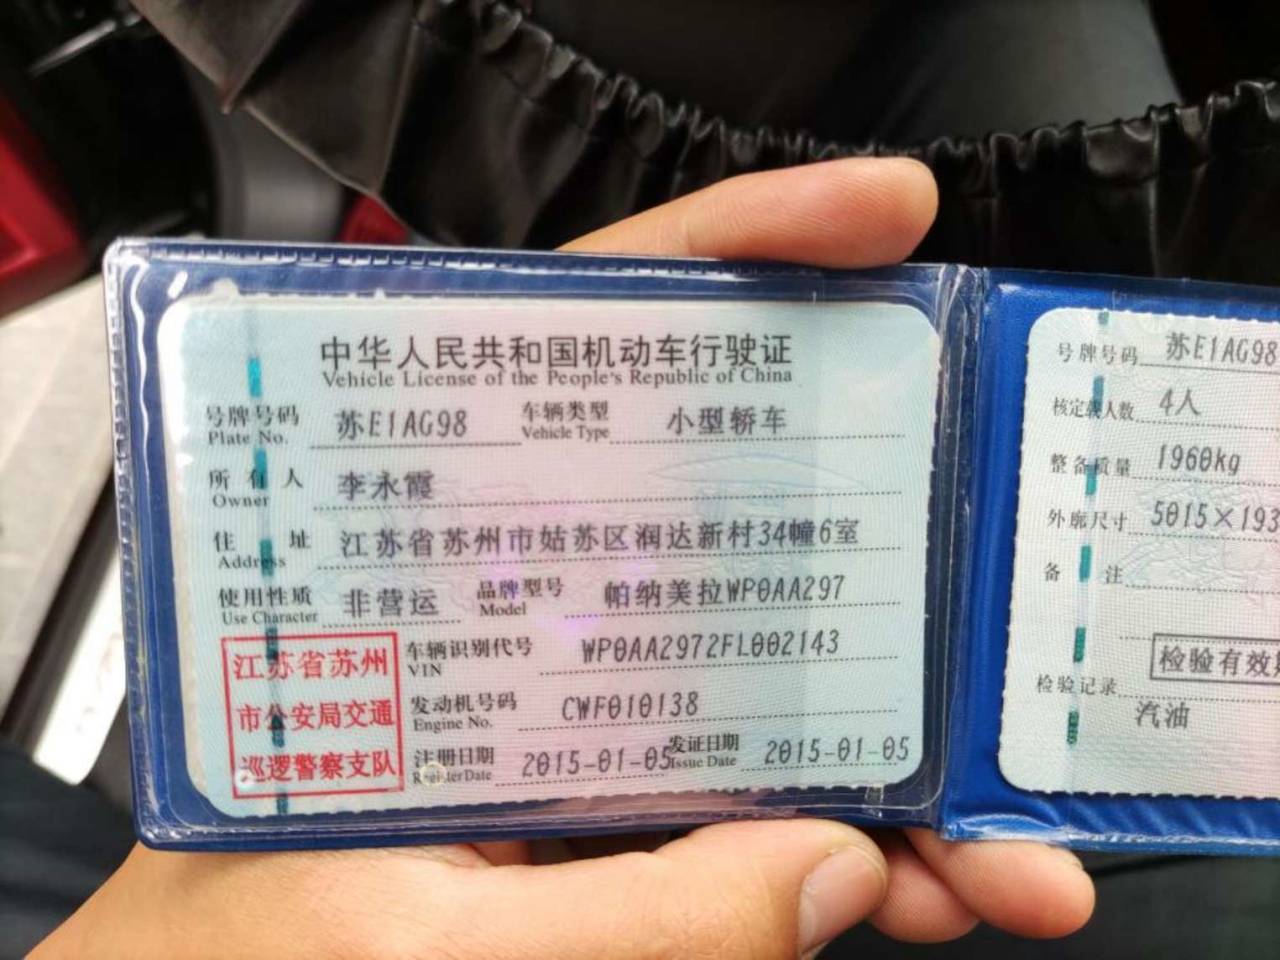 中华人民共和国机动车行驶证
Vehicle License of the People's Republic of China
号牌号码 苏E1AG98 车辆类型 小型轿车
Plate No. Vehicle Type
所有人 李永霞
Owner
住址 江苏省苏州市姑苏区润达新村34幢6室
Address
使用性质 非营运 品牌型号 帕纳美拉WP0AA297
Use Character Model
江苏省苏州
市公安局交通
巡逻警察支队
车辆识别代号 WP0AA2972FL002143
VIN
发动机号码 CWF010138
Engine No.
注册日期 2015-01-05 发证日期 2015-01-05
Register Date Issue Date
号牌号码 苏E1AG98
核定载人数 4人
整备质量 1960kg
外廓尺寸 5015×193
备注
检验有效期
检验记录
汽油